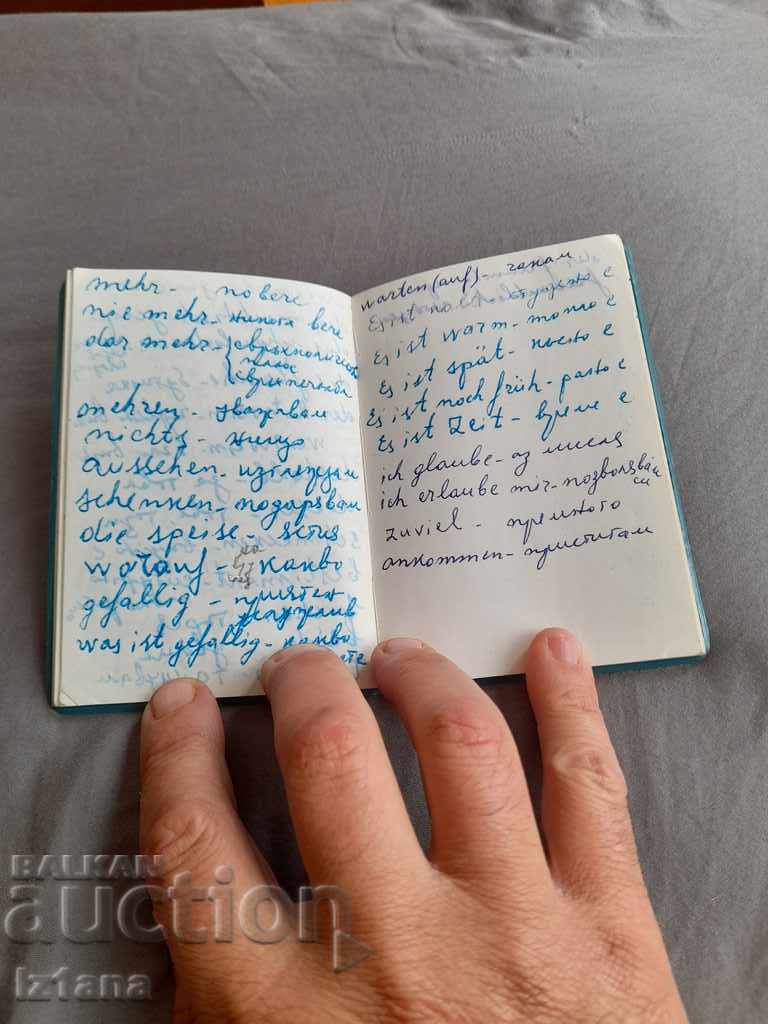 mehr - повече
nie mehr - никога вече
das mehr - свръхколичество
плюс
свръхпечалба
mehren - уважавам
nichts - нищо
aussehen - изглеждам
schenken - подарявам
die speise - ястие
worauf - на какво
gefällig - приятен
услужлив
was ist gefällig - какво
warten (auf) - чакам
Es ist - студено е
Es ist warm - топло е
Es ist spät - късно е
Es ist noch früh - рано е
Es ist Zeit - време е
ich glaube - аз мисля
ich erlaube mir - позволявам
си
zuviel - премного
ankommen - пристигам
BALKAN
auction
iz1ana